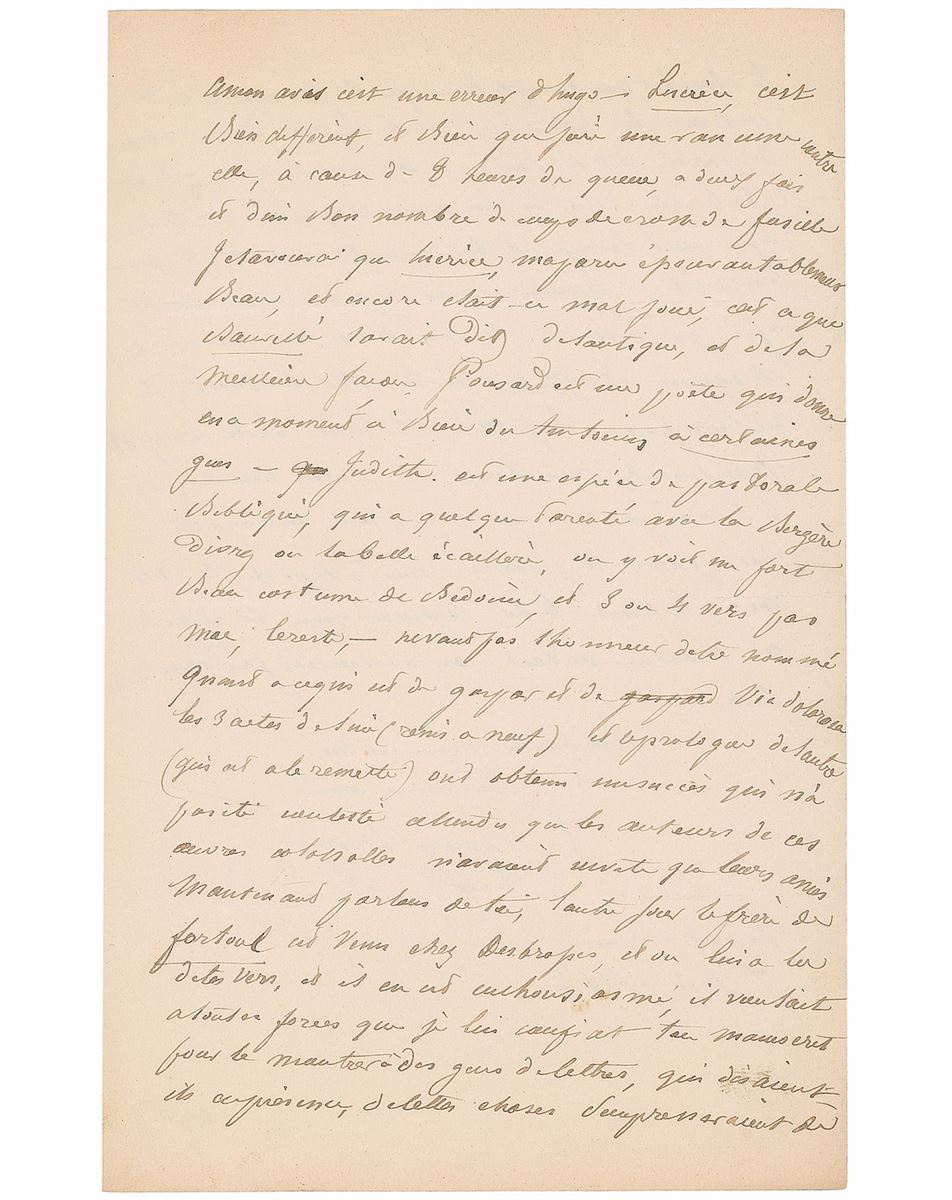 Amon avis c'est une erreur d'hugo — Lucrèce, c'est
Bien different, et Bien que j'aie une rancune contre
elle, à cause de 8 heures de queue, a deux fois
et d'un Bon nombre de coups de crosse de fusille
Je t'avourai que lucrèce, m'a paru épouvantablement
Beau, et encore etait-ce mal joué, c'est a que
l'avait dit de l'antique, et de la
meilleure facon, Ponsard est un poëte qui donne
en a moment à Bien du tintouin à certaines
gens — Judith. est une espéce de pastorale
Bibliqüe, qui a quelque Parenté avec la Bergère
d'ivry ou la belle écaillère, on y voit un fort
Beau costume de Bedouin, et 3 ou 4 vers pas
mal, le reste, — ne vaut pas l'honneur d'etre nommé
Quant a ce qui est de gaspar et de gaspard Via dolorosa
les 3 actes de l'un (remis a neuf) et le prologue de l'autre
(qui est a le remette) ont obtenu un succès qui n'a
pas été contesté attendu que les auteurs de ces
œuvres colossalles n'avaient invité que leurs amis
Maintenant parlons de toi, l'autre jour le frère de
fortoul est venu chez Desbrosses, et on lui a lu
de tes vers, et il en est enthousiasmé, il voulait
a toutes forces que je lui confiat ton manuscrit
pour le montrer à des gens de lettres, qui disaient
ils en présence, de telles choses s'empresseraient de